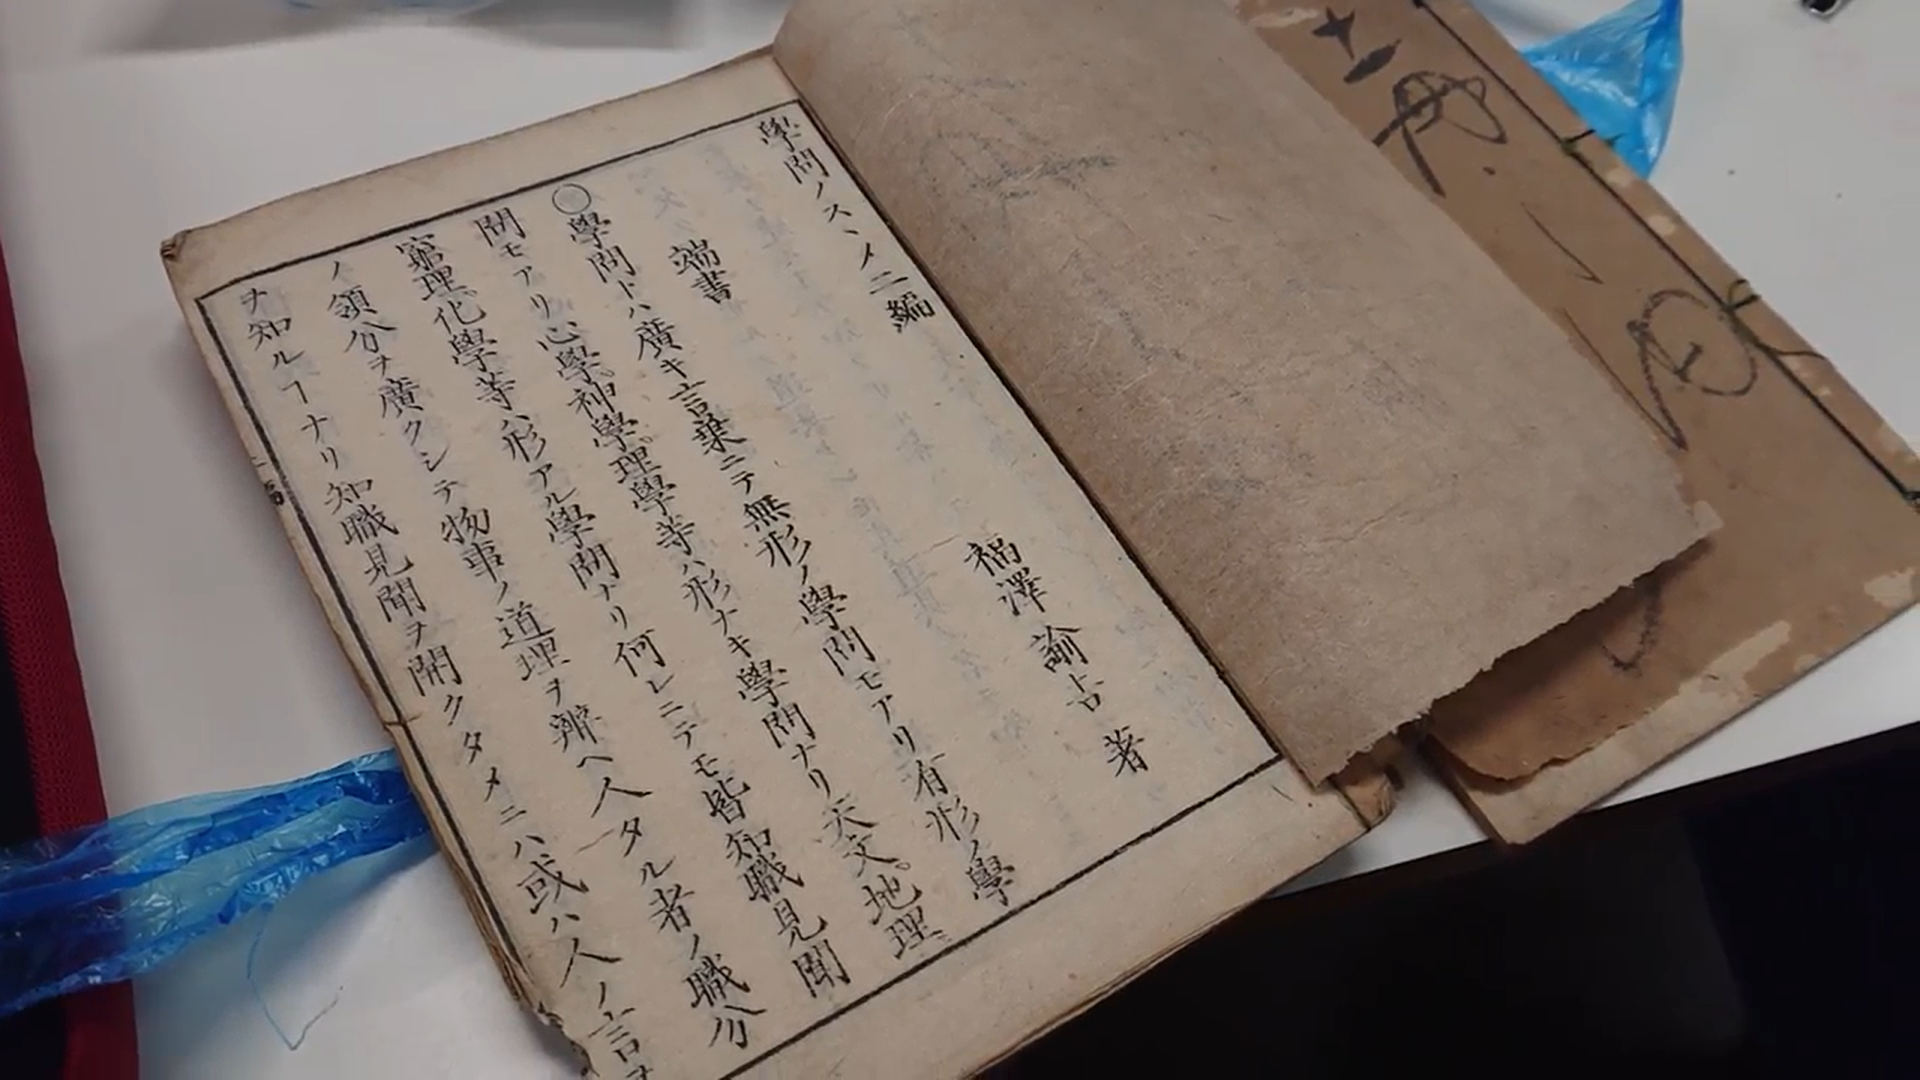 學問ノスヽメ二編
福澤諭吉著
端書
○學問トハ廣キ言葉ニテ無形ノ學問モアリ有形ノ學
問モアリ心學。神學。理學等ハ形ナキ學問ナリ天文。地理。
窮理化學等ハ形アル學問ナリ何レニテモ皆知職見聞
ノ領分ヲ廣クシテ物事ノ道理ヲ辨ヘ人タル者ノ職分
ヲ知ルヿナリ知職見聞ヲ開クタメニハ或ハ人ノ言ヲ